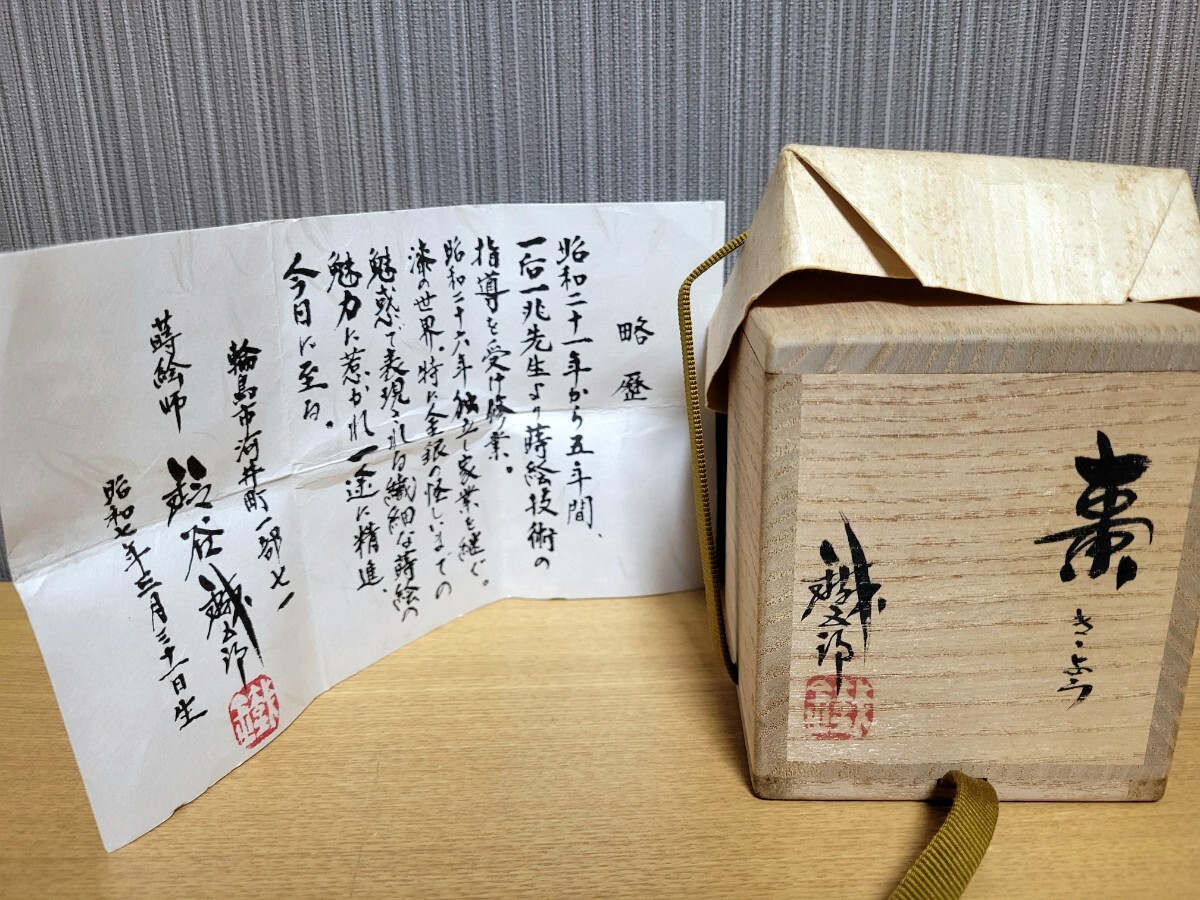 略歴
昭和二十一年から五年間、
一后一兆先生より蒔絵技術の
指導を受け修業。
昭和二十六年独立し家業を継ぐ。
漆の世界、特に金銀の怪しいまでの
魅惑で表現される繊細な蒔絵の
魅力に惹かれ一途に精進、
今日に至る。
輪島市河井町一部七一
蒔絵師 鈴谷鐵五郎
昭和七年三月三十一日生
鐵
棗
きゝょう
鐵五郎
鐵